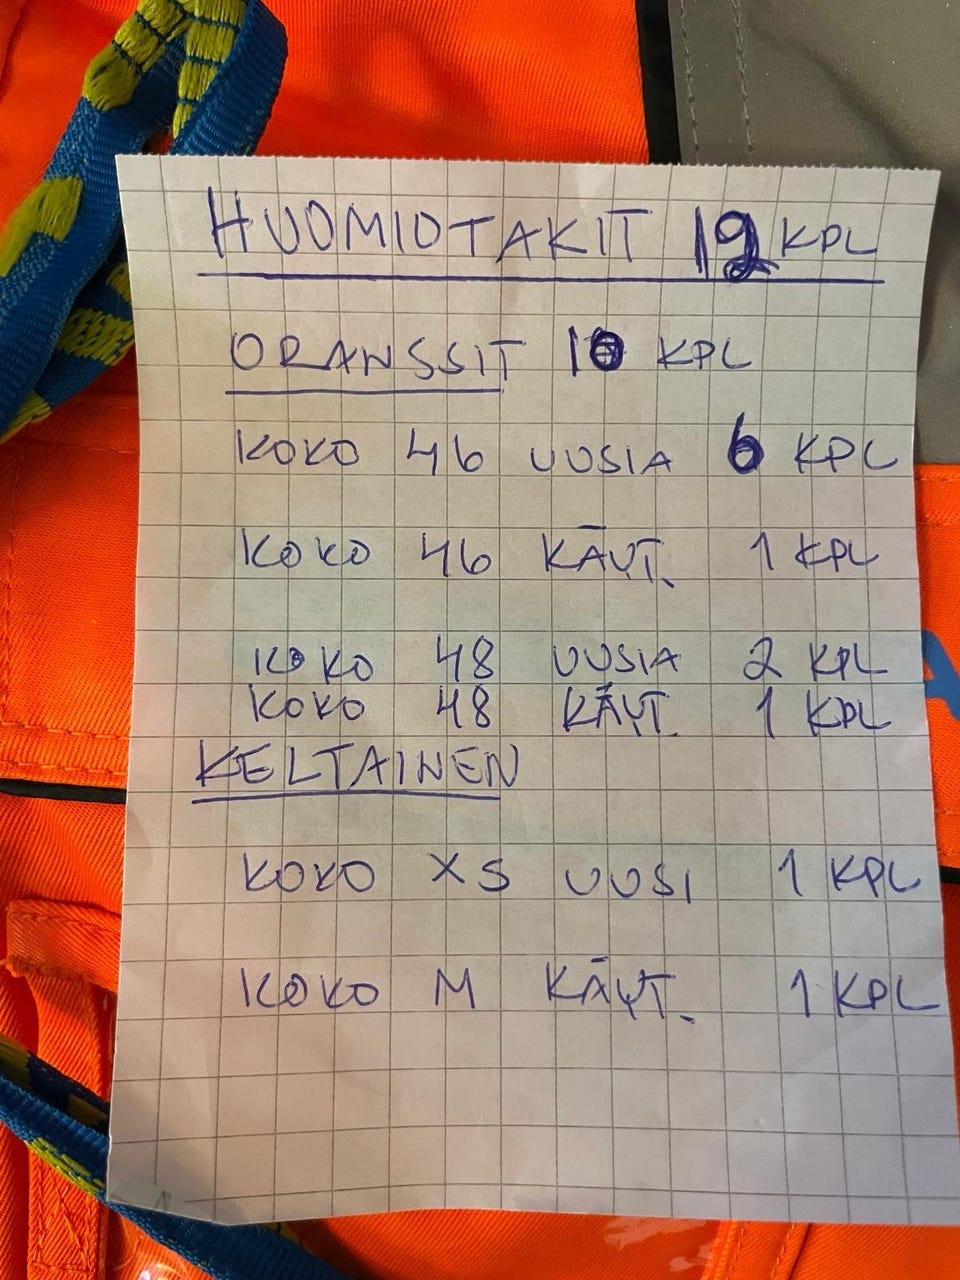 HUOMIOTAKIT 12 KPL
ORANSSIT 10 KPL
KOKO 46 UUSIA 6 KPL
KOKO 46 KÄYT. 1 KPL
KOKO 48 UUSIA 2 KPL
KOKO 48 KÄYT. 1 KPL
KELTAINEN
KOKO XS UUSI 1 KPL
KOKO M KÄYT. 1 KPL